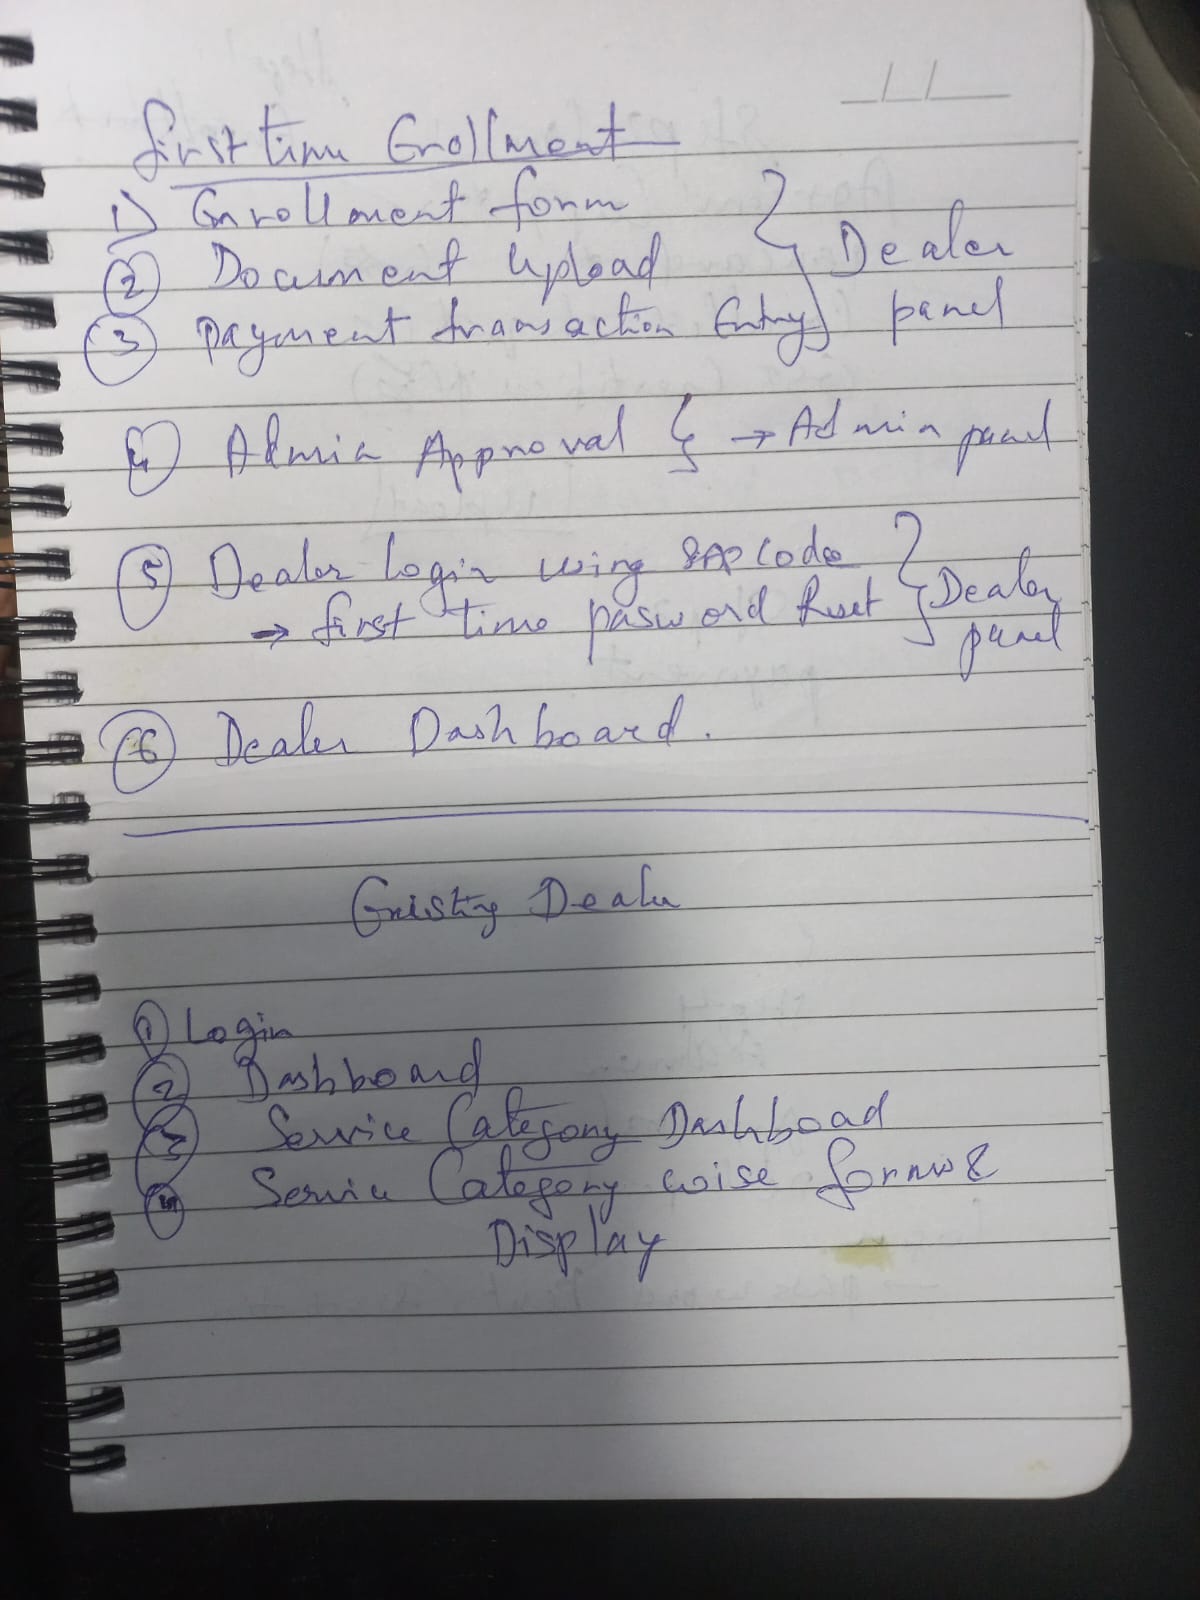 First time Enrollment
1) Enrollment form
2 Document Upload
3 Payment transaction Entry } Dealer panel
4 Admin Approval } → Admin panel
5 Dealer Login using SAP Code
→ first time pasword Reset } Dealer panel
6 Dealer Dashboard.
Existing Dealer
1 Login
2 Dashboard
3 Service Category Dashboad
4 Service Category wise forms &
Display